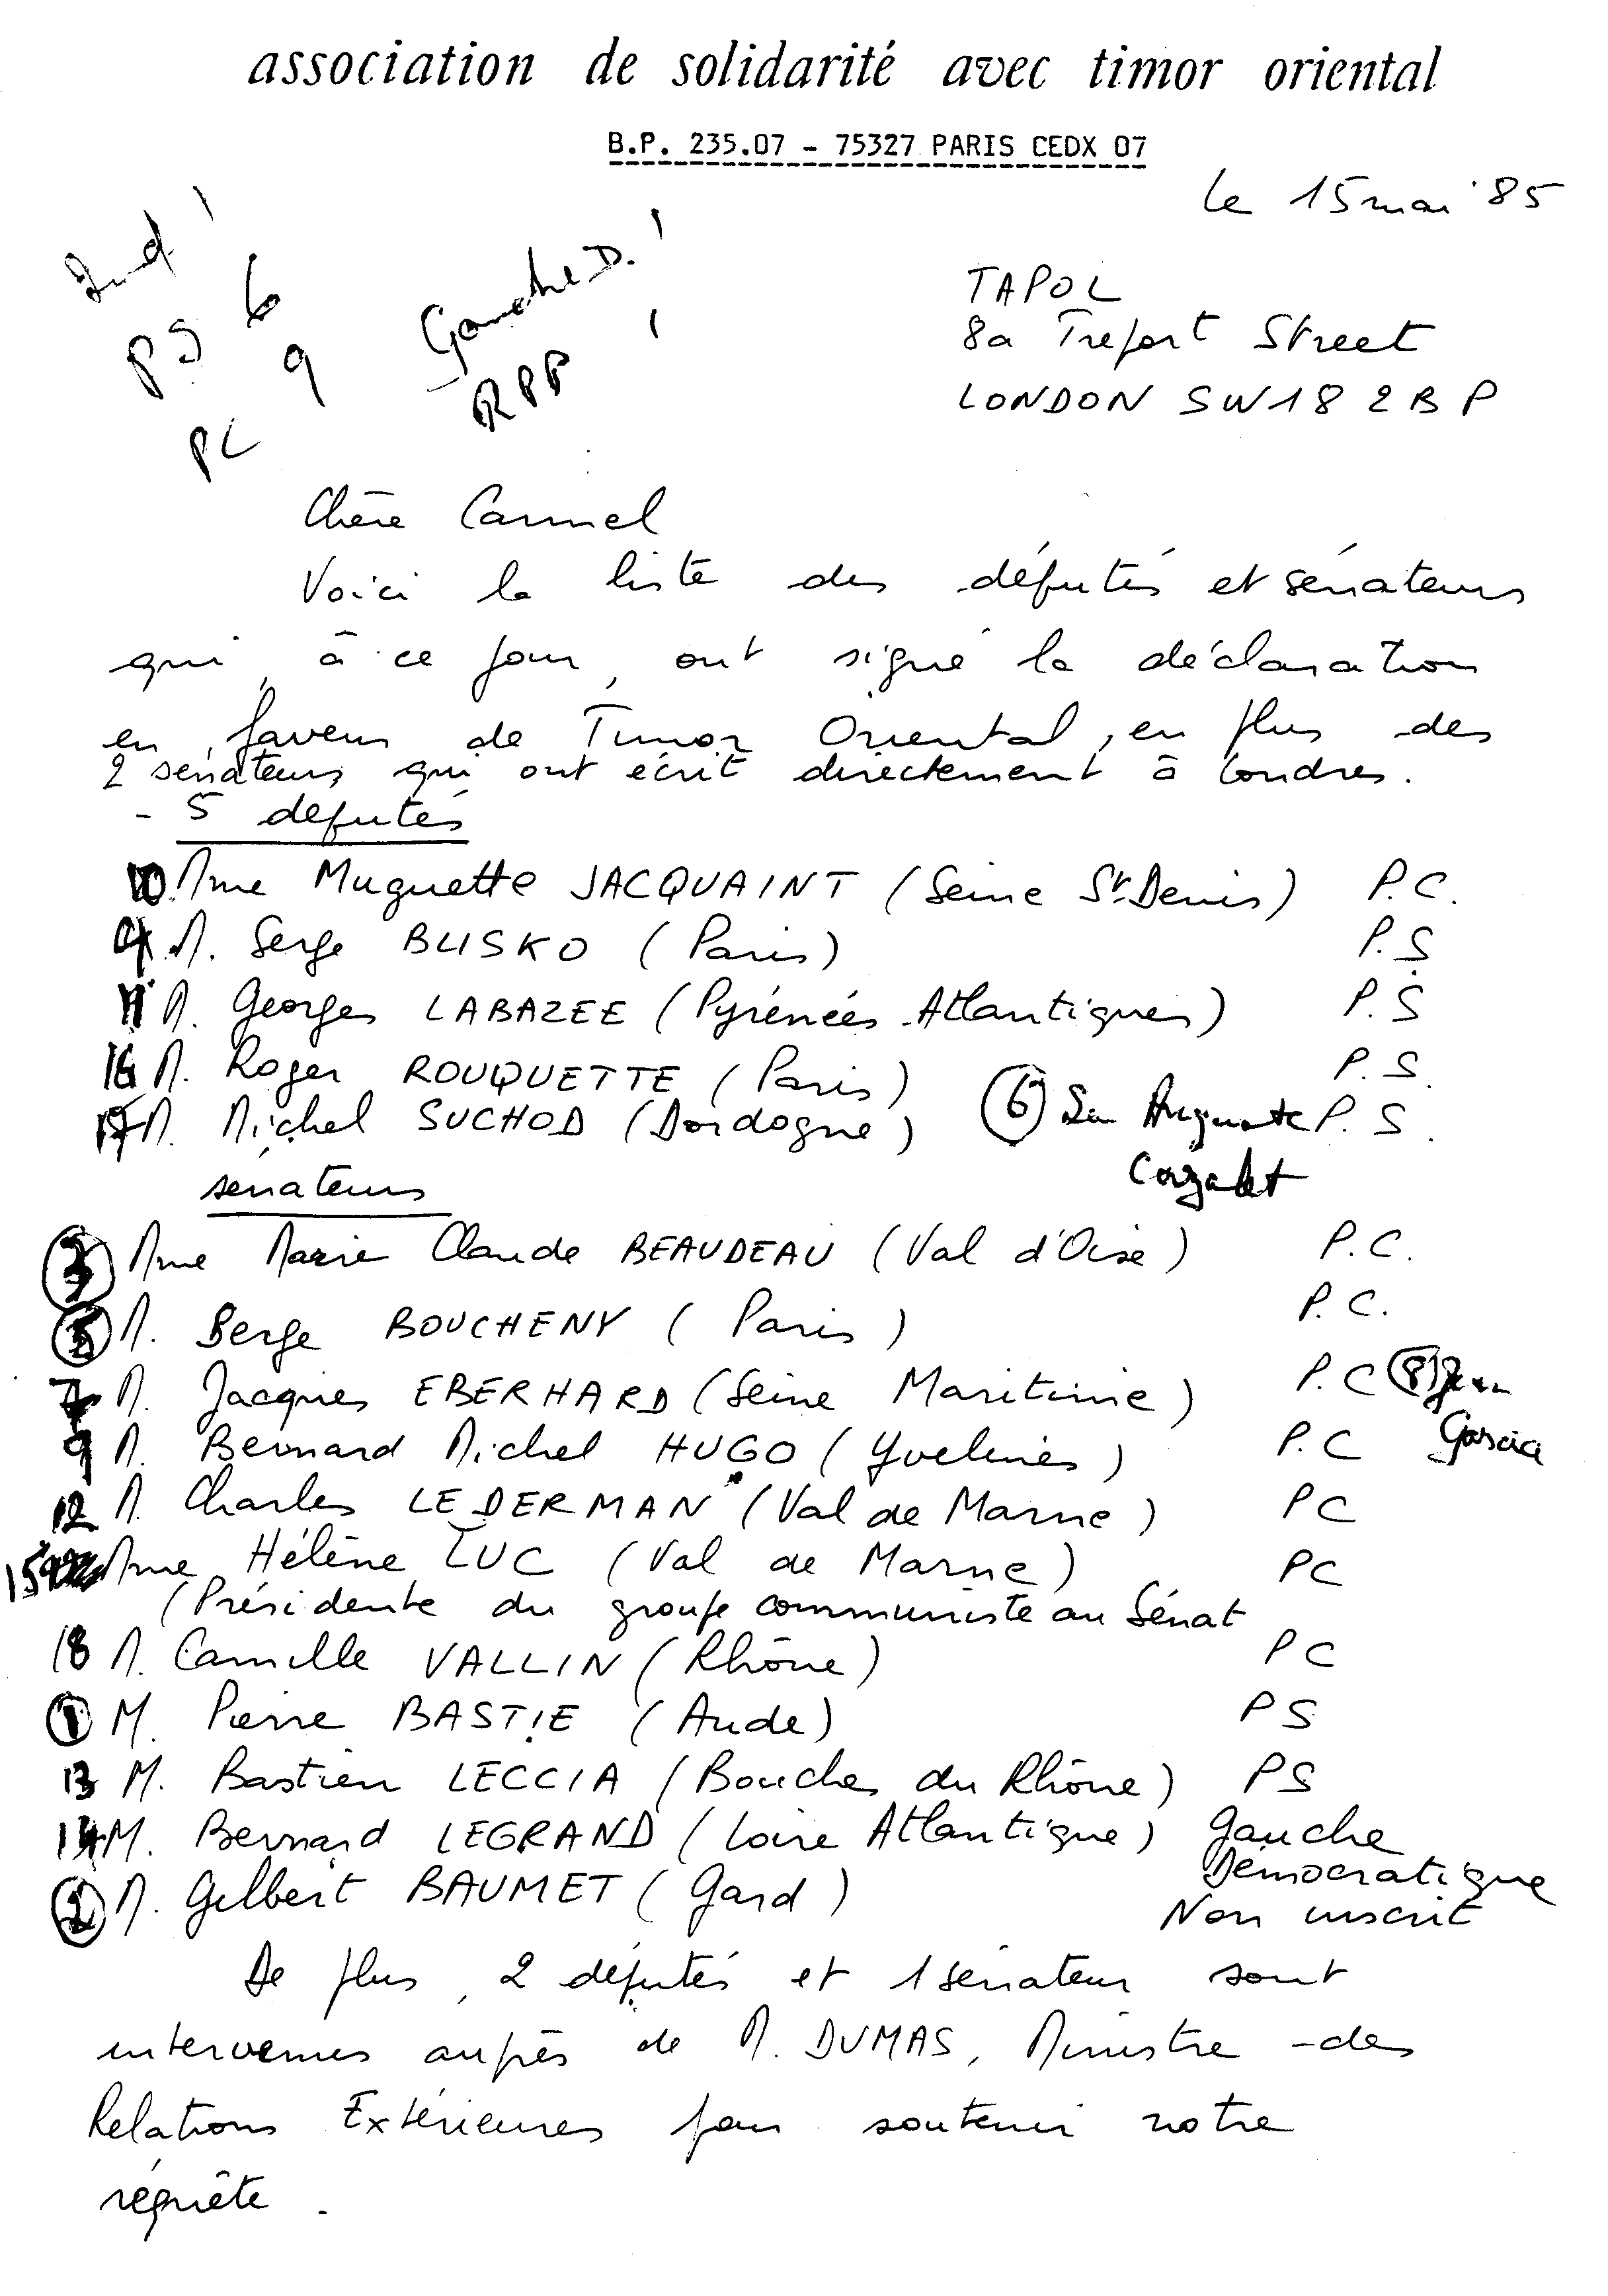 association de solidarité avec timor oriental
B.P. 235.07 - 75327 PARIS CEDX 07
Le 15 mai '85
Ind 1
PS 6
9
PC
Gauche D. 1
RPP 1
TAPOL
8a Treport Street
LONDON SW18 2BP
Chère Carmel
Voici la liste des députés et sénateurs
qui, à ce jour, ont signé la déclaration
en faveur de Timor Oriental, en plus des
2 sénateurs qui ont écrit directement à Londres.
- 5 députés
10 Mme Muguette JACQUAINT (Seine St. Denis) P.C.
4 M. Serge BLISKO (Paris) P.S
11 M. Georges LABAZEE (Pyrénées Atlantiques) P.S
16 M. Roger ROUQUETTE (Paris) P.S.
17 M. Michel SUCHOD (Dordogne) P.S.
(6) Sen Auguste
Cazalet
sénateurs
3 Mme Marie Claude BEAUDEAU (Val d'Oise) P.C.
5 M. Serge BOUCHENY (Paris) P.C.
7 M. Jacques EBERHARD (Seine Maritime) P.C (8) Jean
Garcia
9 M. Bernard Michel HUGO (Yvelines) P.C
12 M. Charles LEDERMAN (Val de Marne) PC
15 Mme Hélène LUC (Val de Marne) PC
(Présidente du groupe communiste au Sénat
18 M. Camille VALLIN (Rhône) PC
1 M. Pierre BASTIE (Aude) PS
13 M. Bastien LECCIA (Bouches du Rhône) PS
14 M. Bernard LEGRAND (Loire Atlantique) Gauche
Démocratique
2 M. Gilbert BAUMET (Gard) Non inscrit
De plus, 2 députés et 1 sénateur sont
intervenus auprès de M. DUMAS, Ministre des
Relations Extérieures pour soutenir notre
réquête.